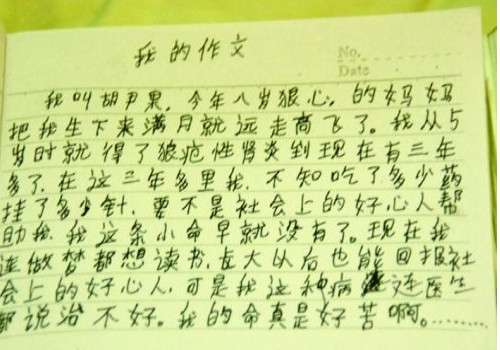 我的作文
No.
Date
我叫胡尹果，今年八岁狠心，的妈妈
把我生下来满月就远走高飞了。我从5
岁时就得了狼疮性肾炎到现在有三年
多了，在这三年多里我，不知吃了多少药
挂了多少针，要不是社会上的好心人帮
助我，我这条小命早就没有了。现在我
连做梦都想读书，长大以后也能回报社
会上的好心人，可是我这种病连医生
都说治不好。我的命真是好苦啊。……